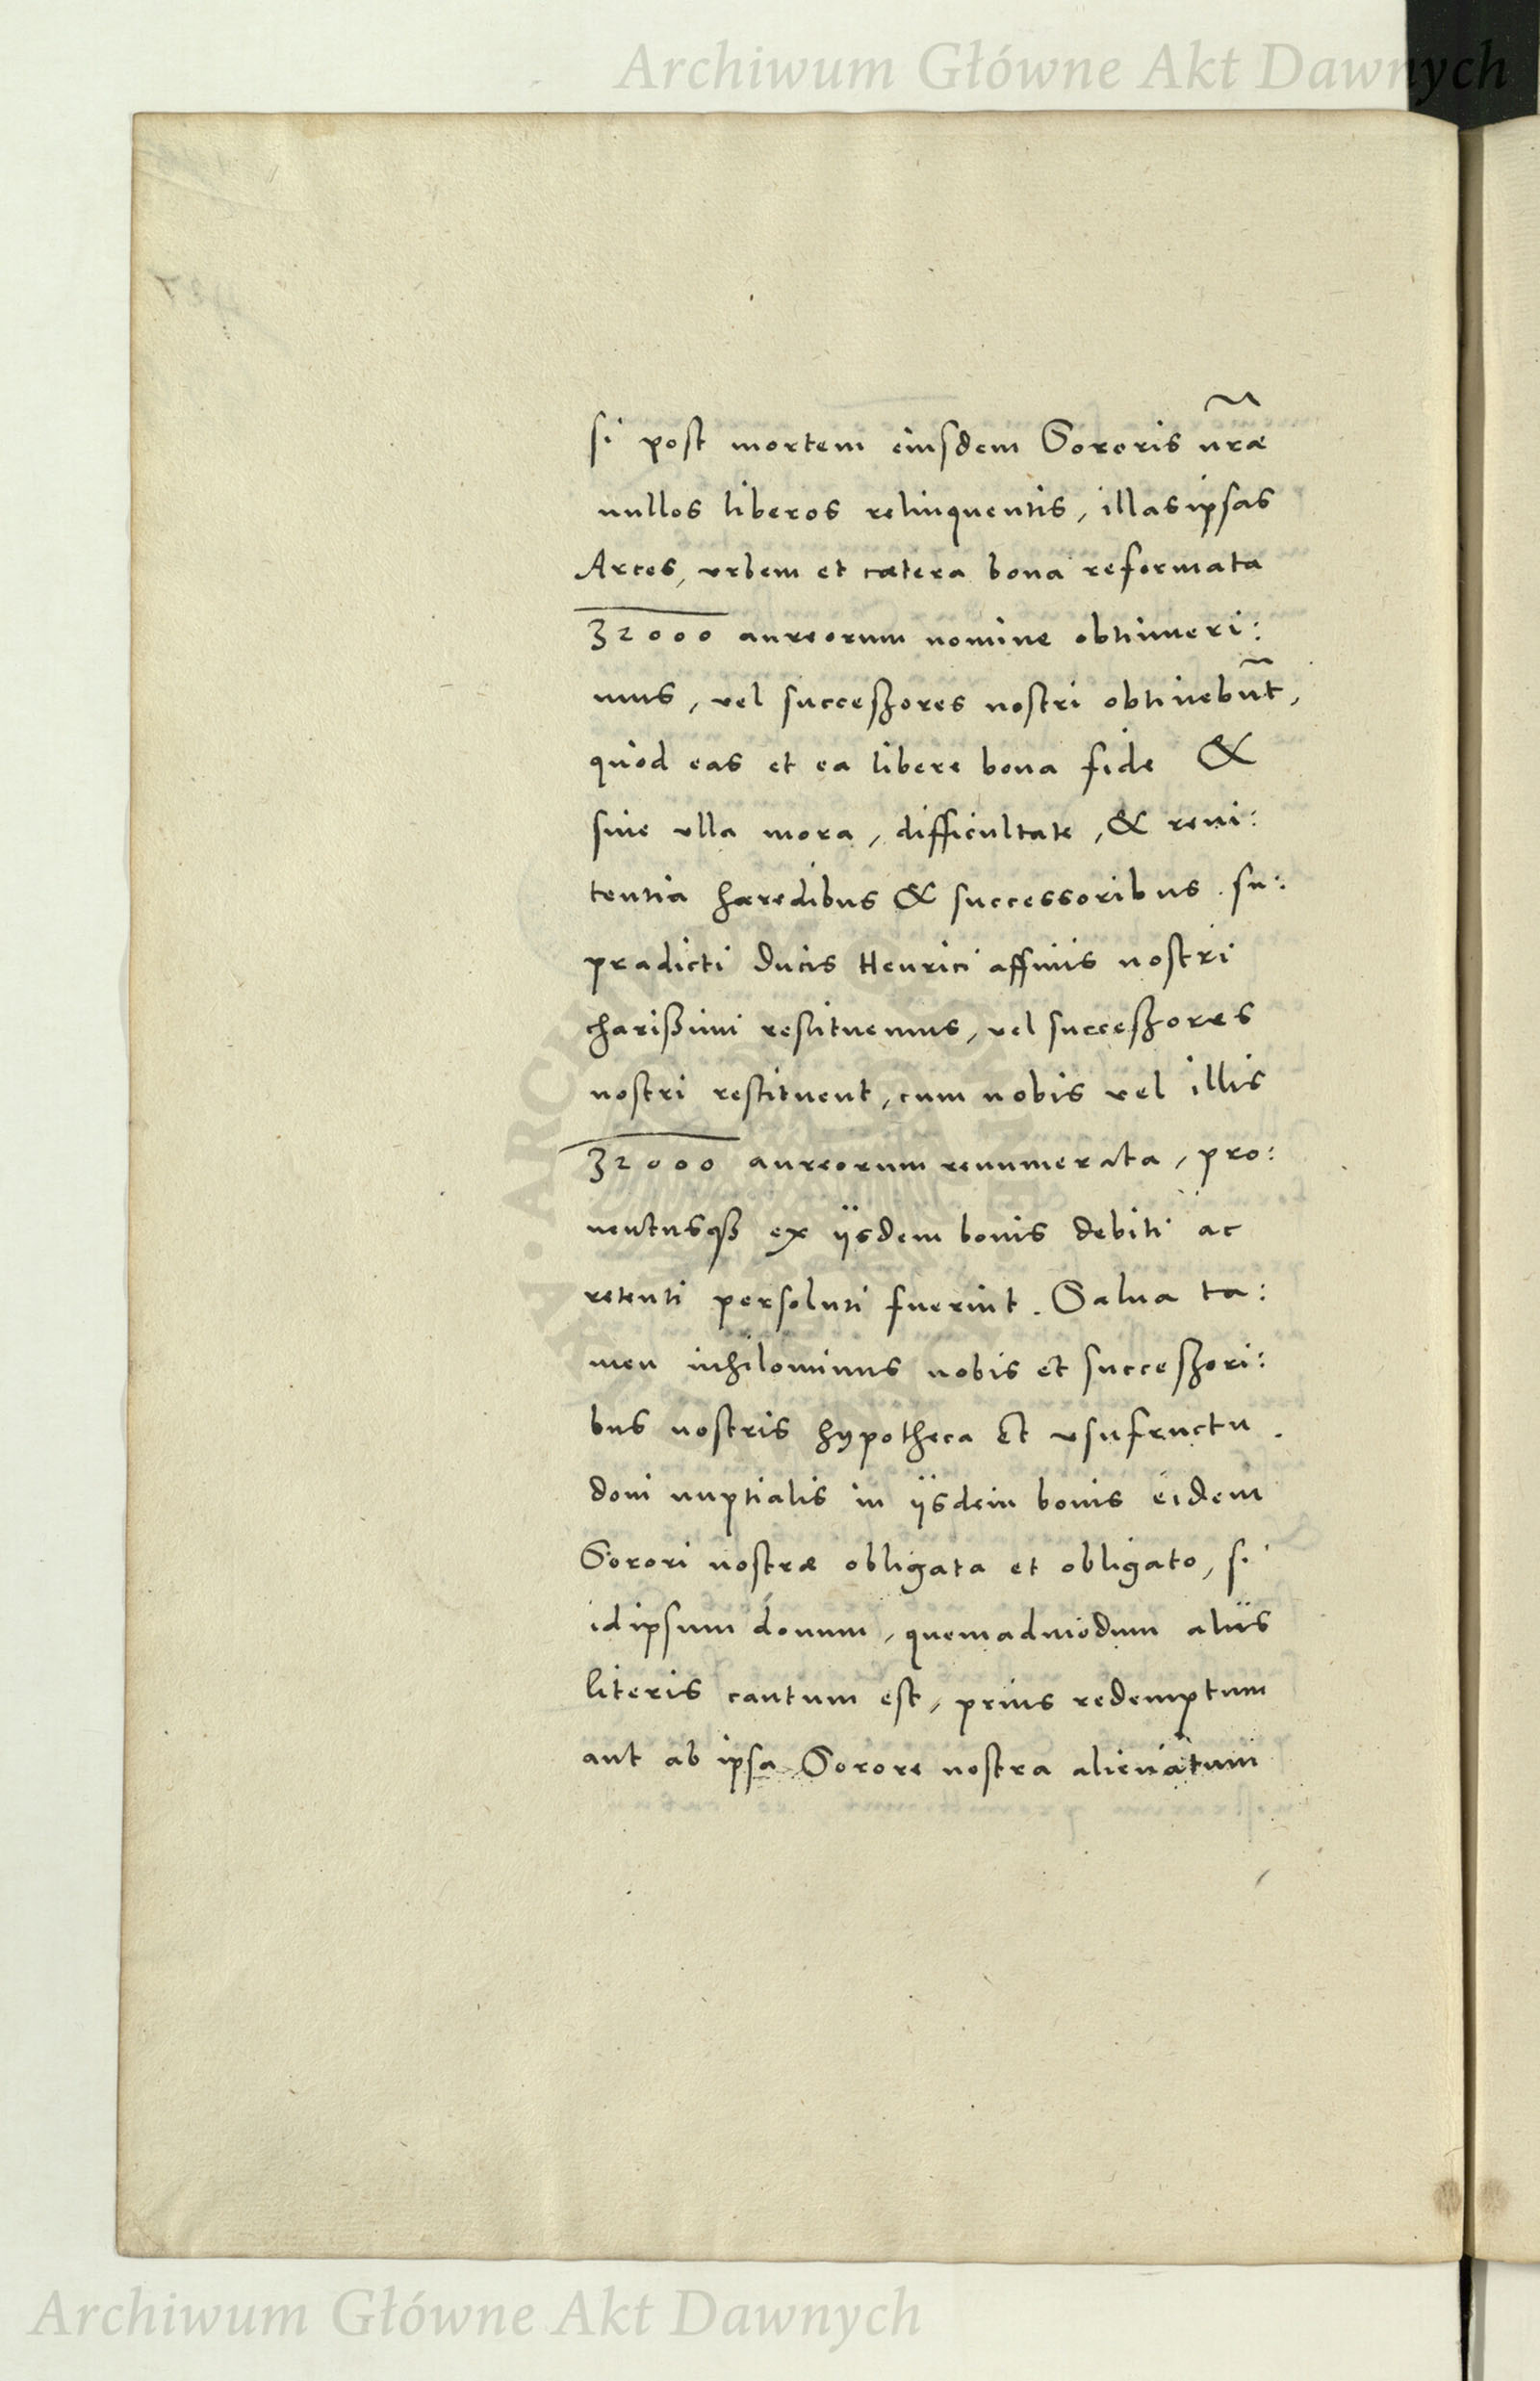 Archiwum Główne Akt Dawnych
si post mortem eiusdem Sororis nr̃æ
nullos liberos relinquentis, illas ipsas
Arces, vrbem et cætera bona reformata
32000 aureorum nomine obtinueri:
mus, vel successores nostri obtinebũt,
quod eas et ea libere bona fide &
sine vlla mora, difficultate, & reni:
tentia hæredibus & successoribus su:
pradicti Ducis Henrici affinis nostri
charissimi restituemus, vel successores
nostri restituent, cum nobis vel illis
32000 aureorum renumerata, pro:
uentusq3 ex ijsdem bonis debiti ac
retenti persoluti fuerint. Salua ta:
men nihilominus nobis et successori:
bus nostris hypotheca Et vsufructu.
doni nuptialis in ijsdem bonis eidem
Sorori nostræ obligata et obligato, si
id ipsum donum, quemadmodum aliis
literis cautum est, prius redemptum
aut ab ipsa Sorore nostra alienatum
Archiwum Główne Akt Dawnych